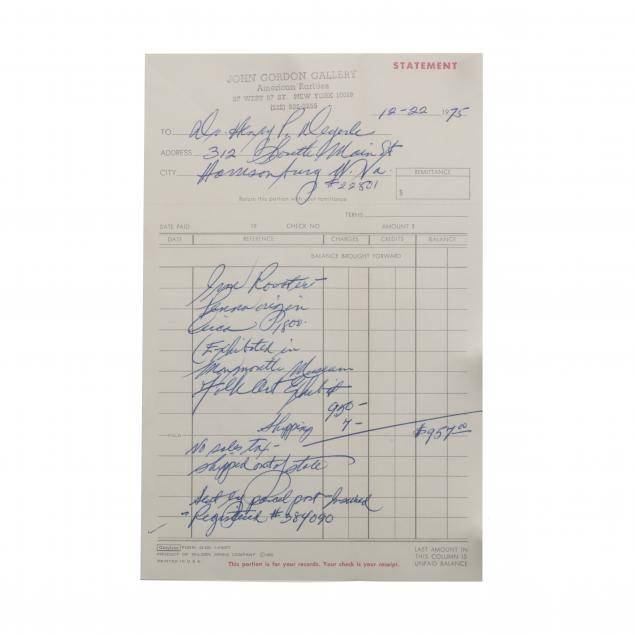 STATEMENT
JOHN GORDON GALLERY
American Rarities
37 WEST 57 ST. NEW YORK 10019
12-22 1975
TO Dr Henry P. Deyerle
ADDRESS 312 South Main St
CITY Harrisonburg W. Va.
#22801
REMITTANCE
$
Return this portion with your remittance
TERMS
DATE PAID 19 CHECK NO AMOUNT $
DATE REFERENCE CHARGES CREDITS BALANCE
BALANCE BROUGHT FORWARD
Iron Rooster-
Penna origin
Circa 1800.
(Exhibited in
Monmouth Museum
Folk Art Exhibit
950-
Shipping 7-
$957.00
No sales tax-
shipped out of state
Sent by parcel post-Insured
Registered #384090
PRODUCT OF WILSON JONES COMPANY
PRINTED IN U.S.A.
This portion is for your records. Your check is your receipt.
LAST AMOUNT IN
THIS COLUMN IS
UNPAID BALANCE